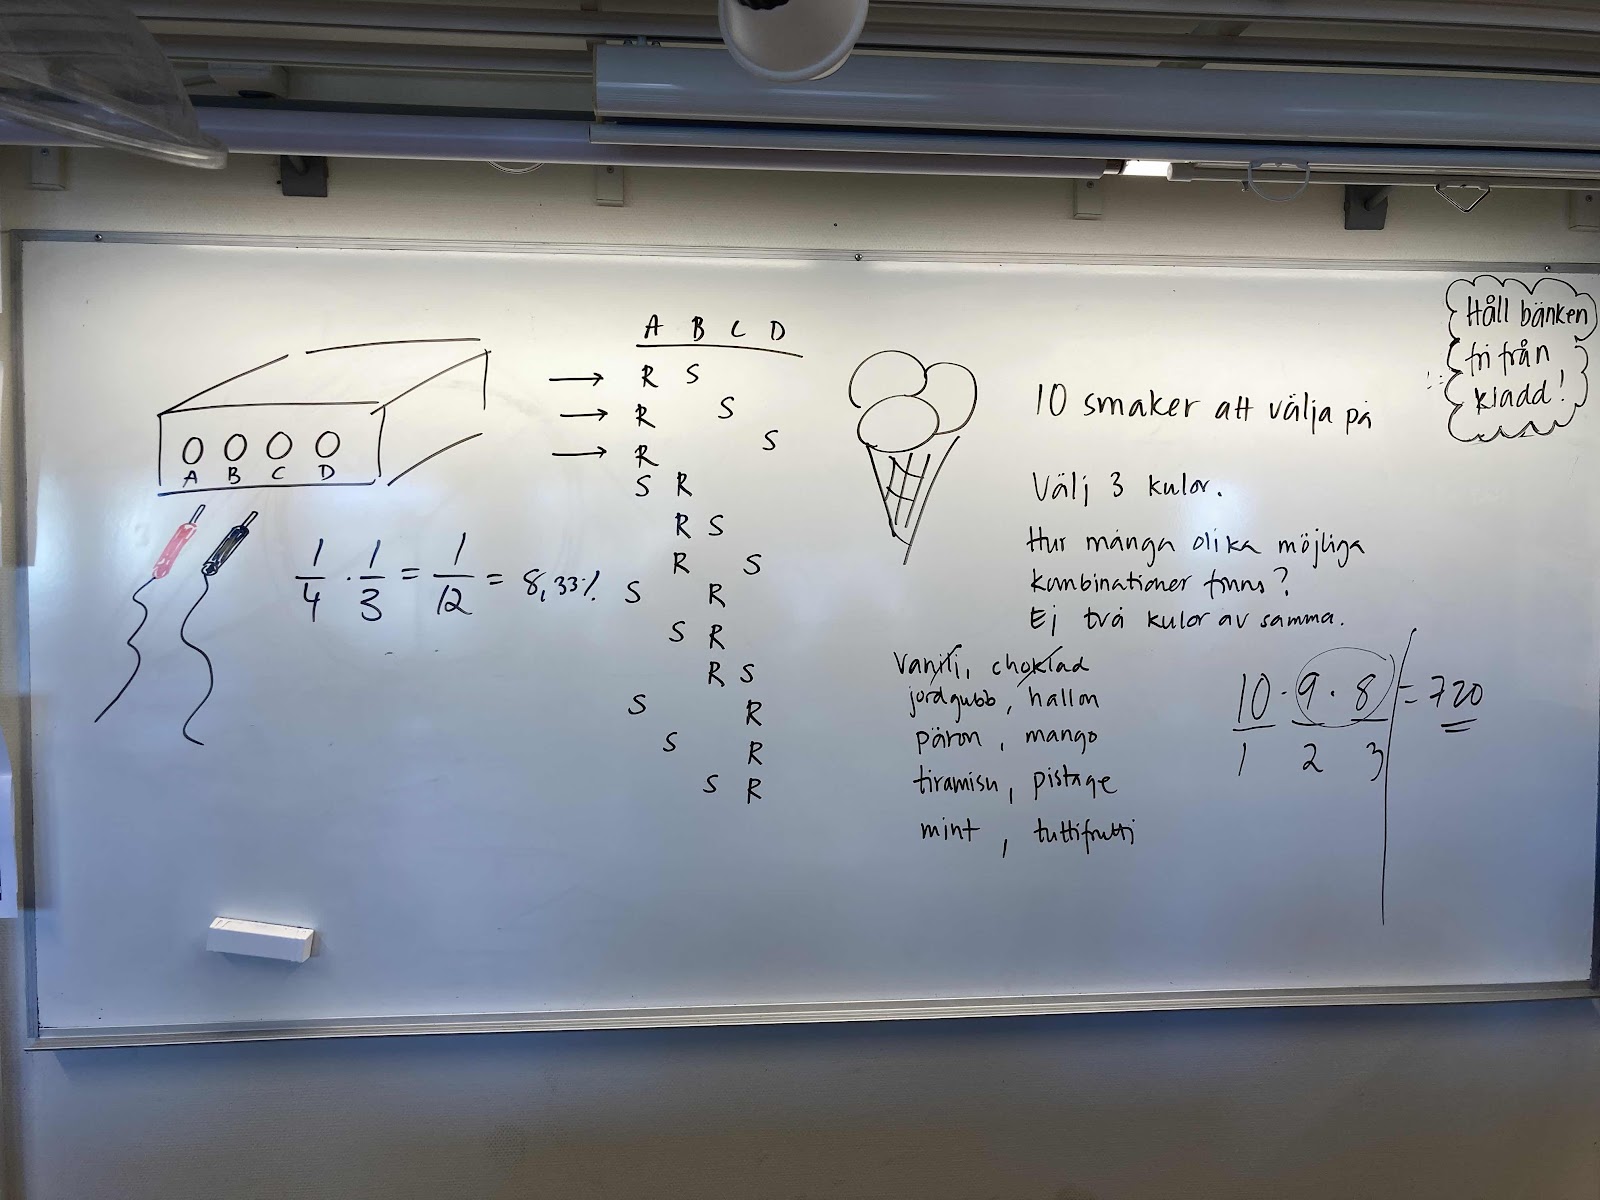 A B C D
R S
R S
R S
S R
R S
R S
S R
S R
R S
S R
S R
S R
A B C D
1/4 · 1/3 = 1/12 = 8,33%
10 smaker att välja på
Välj 3 kulor.
Hur många olika möjliga
kombinationer finns?
Ej två kulor av samma.
Vanilj, choklad
jordgubb, hallon
päron, mango
tiramisu, pistage
mint, tuttifrutti
10 · 9 · 8 = 720
1 2 3
Håll bänken
fri från
kladd!